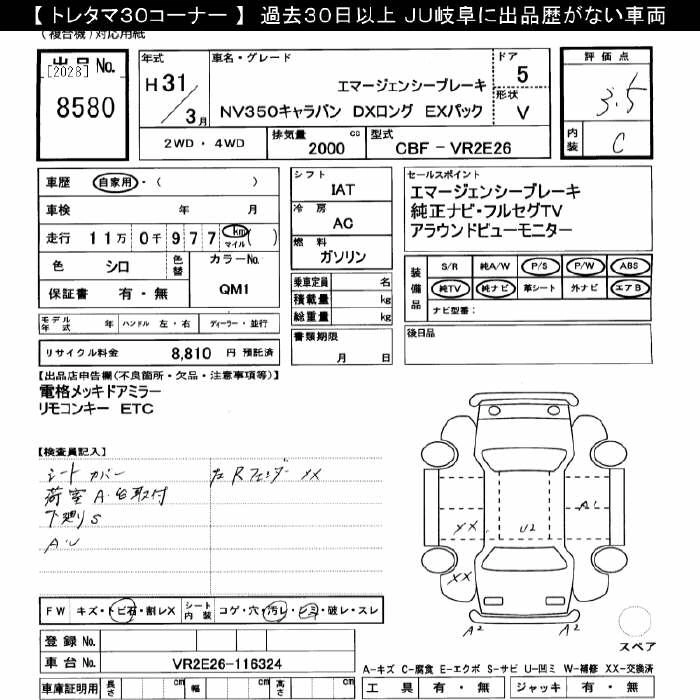 【 トレタマ30コーナー 】 過去30日以上 JU岐阜に出品歴がない車両
(複合機)対応用紙
出品 No.
[2028]
8580
年式
H 31
3月
車名・グレード
エマージェンシーブレーキ
NV350キャラバン DXロング EXパック
ドア
5
形状
V
2WD ・ 4WD
排気量
2000 cc
型式
CBF - VR2E26
評価点
3.5
内装
C
車歴 自家用・( )
車検 年 月
走行 11万 0千 977 km マイル ( )
色 シロ 色替
カラーNo.
QM1
保証書 有・無
シフト
IAT
冷房
AC
燃料
ガソリン
乗車定員 名
積載量 kg
総重量 kg
セールスポイント
エマージェンシーブレーキ
純正ナビ・フルセグTV
アラウンドビューモニター
装備品
S/R 純A/W P/S P/W ABS
純TV 純ナビ 革シート 外ナビ エアB
ナビ型番：
モデル年式 年 ハンドル 左・右 ディーラー・並行
リサイクル料金 8,810 円 預託済
書類期限
月 日
後日品
【出品店申告欄(不良箇所・欠品・注意事項等)】
電格メッキドアミラー
リモコンキー ETC
【検査員記入】
シートカバー
左Rフェンダー XX
荷室A・S取付
下廻りS
A・U
A1
XX
U2
XX
A2
A2
FW キズ・トビ石・割レX
シート内装 コゲ・穴・汚レ・シミ・破レ・スレ
スペア
登録 No.
車台 No. VR2E26-116324
A-キズ C-腐食 E-エクボ S-サビ U-凹ミ W-補修 XX-交換済
車庫証明用 長さ cm 幅 cm 高さ cm
工具 有・無 ジャッキ 有・無